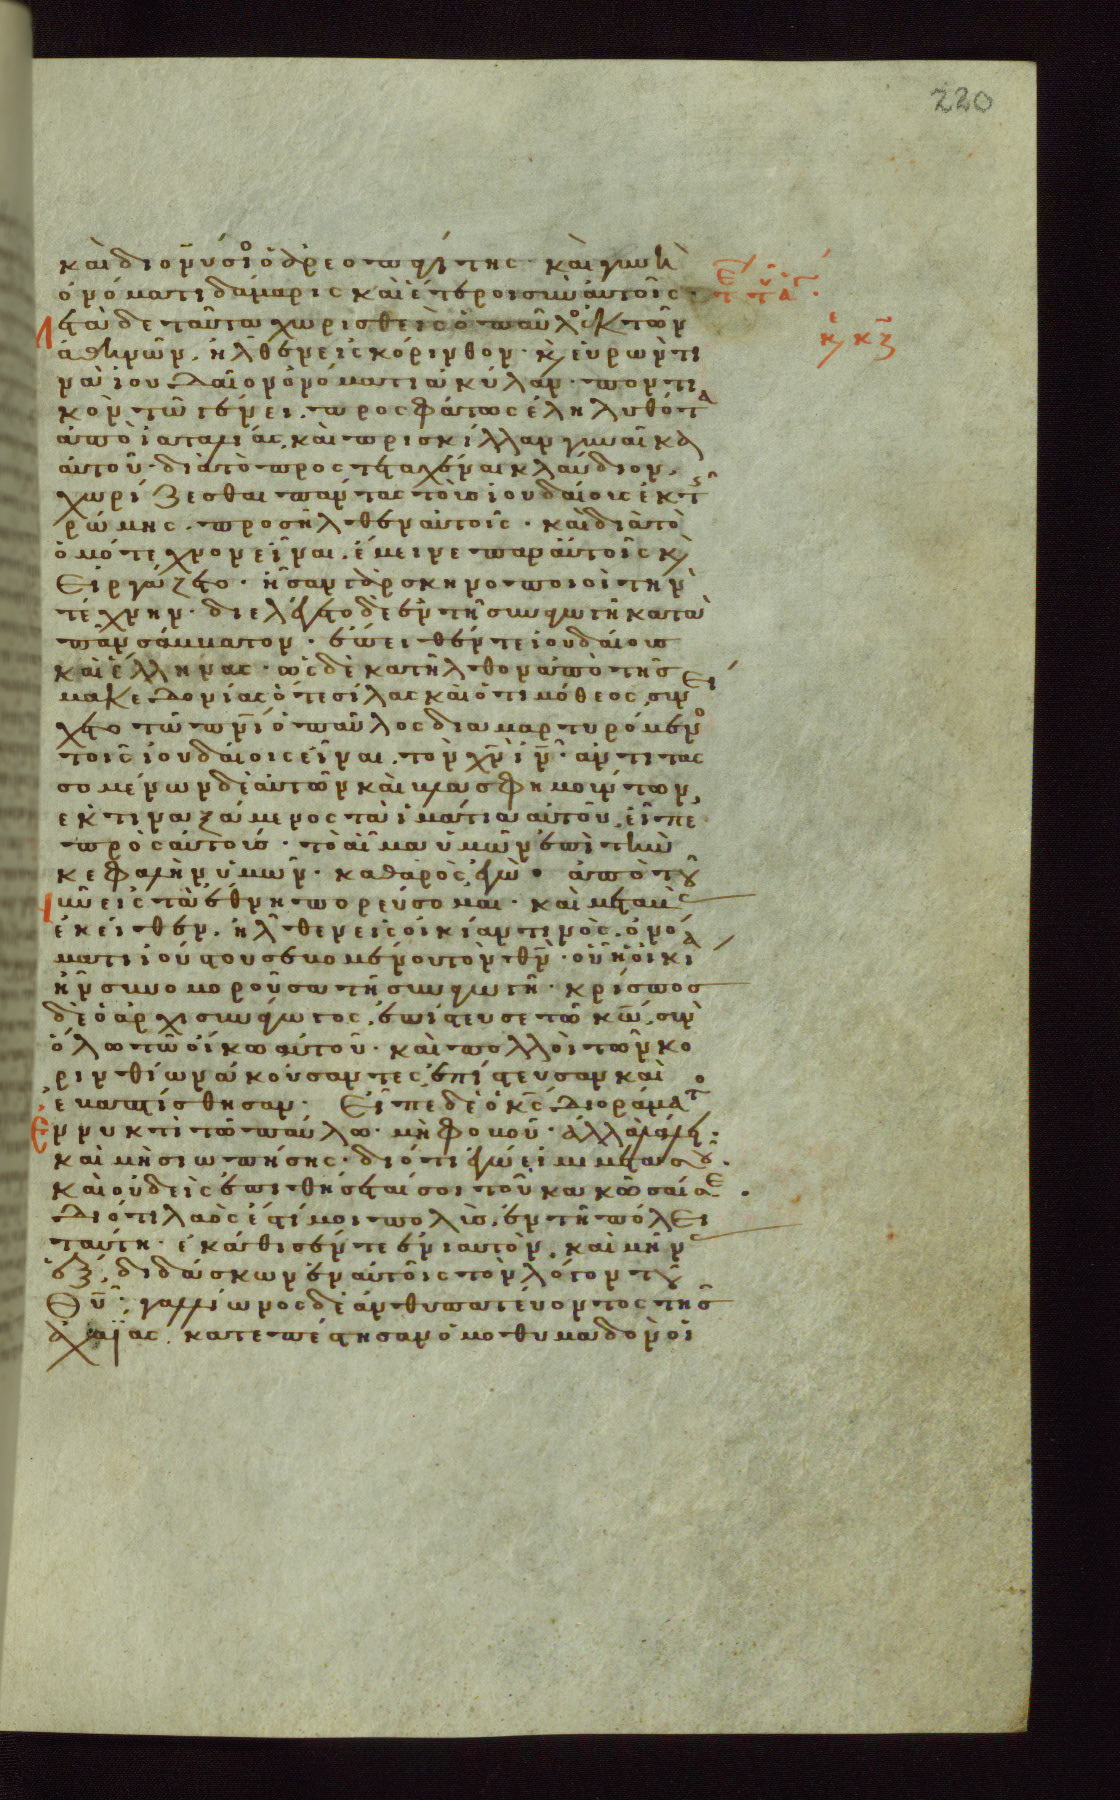 220
καὶ διονύσιο ὁ ἀρεοπαγίτης· καὶ γυνὴ
ὀνόματι δάμαρις καὶ ἕτεροι σὺν αὐτοῖς·
μετὰ δὲ ταῦτα χωρισθεὶς ὁ παῦλος ἐκ τῶν
ἀθηνῶν, ἦλθεν εἰς κόρινθον· κ εὑρών τι
να ἰουδαῖον ὀνόματι ἀκύλαν· ποντι
κὸν τῶ γένει, προσφάτως ἐληλυθότα
ἀπὸ ἰταλίας, καὶ πρισκίλλαν γυναῖκα
αὐτοῦ· διὰ τὸ προστεταχέναι κλαύδιον,
χωρίζεσθαι πάντας τοὺς ἰουδαίους ἐκ τῆς
ρώμης, προσῆλθεν αὐτοῖς· καὶ διὰ τὸ
ὁμότεχνον εἶναι, ἔμεινε παρ αὐτοῖς κ
εἰργάζετο· ἦσαν γὰρ σκηνοποιοὶ τὴν
τέχνην· διελέγετο δὲ ἐν τῆ συναγωγῆ κατὰ
πᾶν σάββατον· ἔπειθέν τε ἰουδαίους
καὶ ἕλληνας· ὡς δὲ κατῆλθον ἀπὸ τῆς
μακεδονίας ὅ τε σίλας καὶ ὁ τιμόθεος, συνεί
χετο τῶ πνι ὁ παῦλος διαμαρτυρόμενο
τοῖς ἰουδαίοις εἶναι, τὸν χν ιν· ἀντιτας
σομένων δὲ αὐτῶν καὶ βλασφημούντων,
ἐκτιναξάμενος τὰ ἱμάτια αὐτοῦ, εἶπε
πρὸς αὐτούς· τὸ αἷμα ὑμῶν ἐπὶ τὴν
κεφαλὴν ὑμῶν· καθαρὸς ἐγὼ· ἀπὸ τοῦ
νῦν εἰς τὰ ἔθνη πορεύσομαι· καὶ μεταβὰς
ἐκεῖθεν, ἦλθεν εἰς οἰκίαν τινὸς, ὀνό
ματι ἰούστου σεβομένου τὸν θν· οὗ ἡ οἰκία
ἦν συνομοροῦσα τῆ συναγωγῆ· κρίσπος
δὲ ὁ ἀρχισυνάγωγος, ἐπίστευσε τῶ κω, σὺν
ὅλω τῶ οἴκω αὐτοῦ· καὶ πολλοὶ τῶν κο
ρινθίων ἀκούσαντες, ἐπίστευσαν καὶ
ἐβαπτίσθησαν· Εἶπε δὲ ὁ κς δι ὁράματο
ἐν νυκτὶ τῶ παύλω· μὴ φοβοῦ· ἀλλὰ λάλει·
καὶ μὴ σιωπήσης· διότι ἐγώ εἰμι μετὰ σοῦ·
καὶ οὐδεὶς ἐπιθήσεταί σοι τοῦ κακῶσαί σε·
διότι λαός ἐστί μοι πολὺς, ἐν τῆ πόλει
ταύτη· ἐκάθισέν τε ἐνιαυτὸν, καὶ μῆνας
ἓξ, διδάσκων ἐν αὐτοῖς τὸν λόγον τοῦ
Θῦ· γαλλίωνος δὲ ἀνθυπατεύοντος τῆς
ἀχαΐας, κατεπέστησαν ὁμοθυμαδὸν οἱ